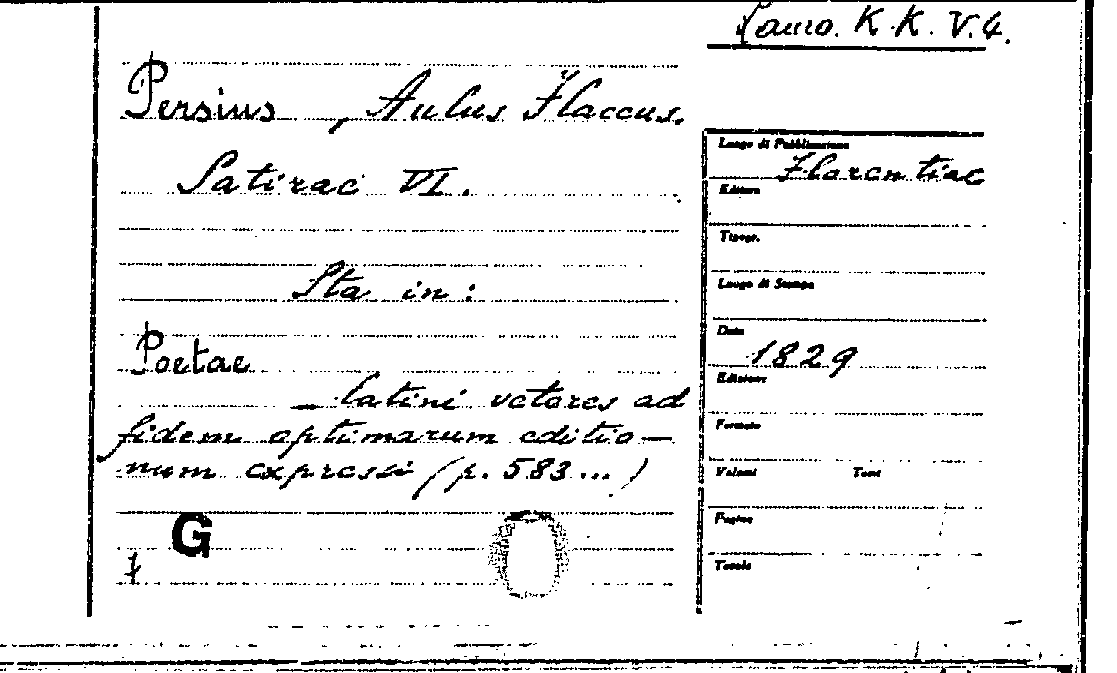 Lauro. K K. V. 4.
Persius, Aulus Flaccus.
Satirae VI.
Sta in:
Poetae
latini veteres ad
fidem optimarum editio-
num expressi (p. 583...)
G
Luogo di Pubblicazione
Florentiae
Editore
Tipogr.
Luogo di Stampa
Data
1829
Edizione
Formato
Volumi Tomi
Pagine
Tavole